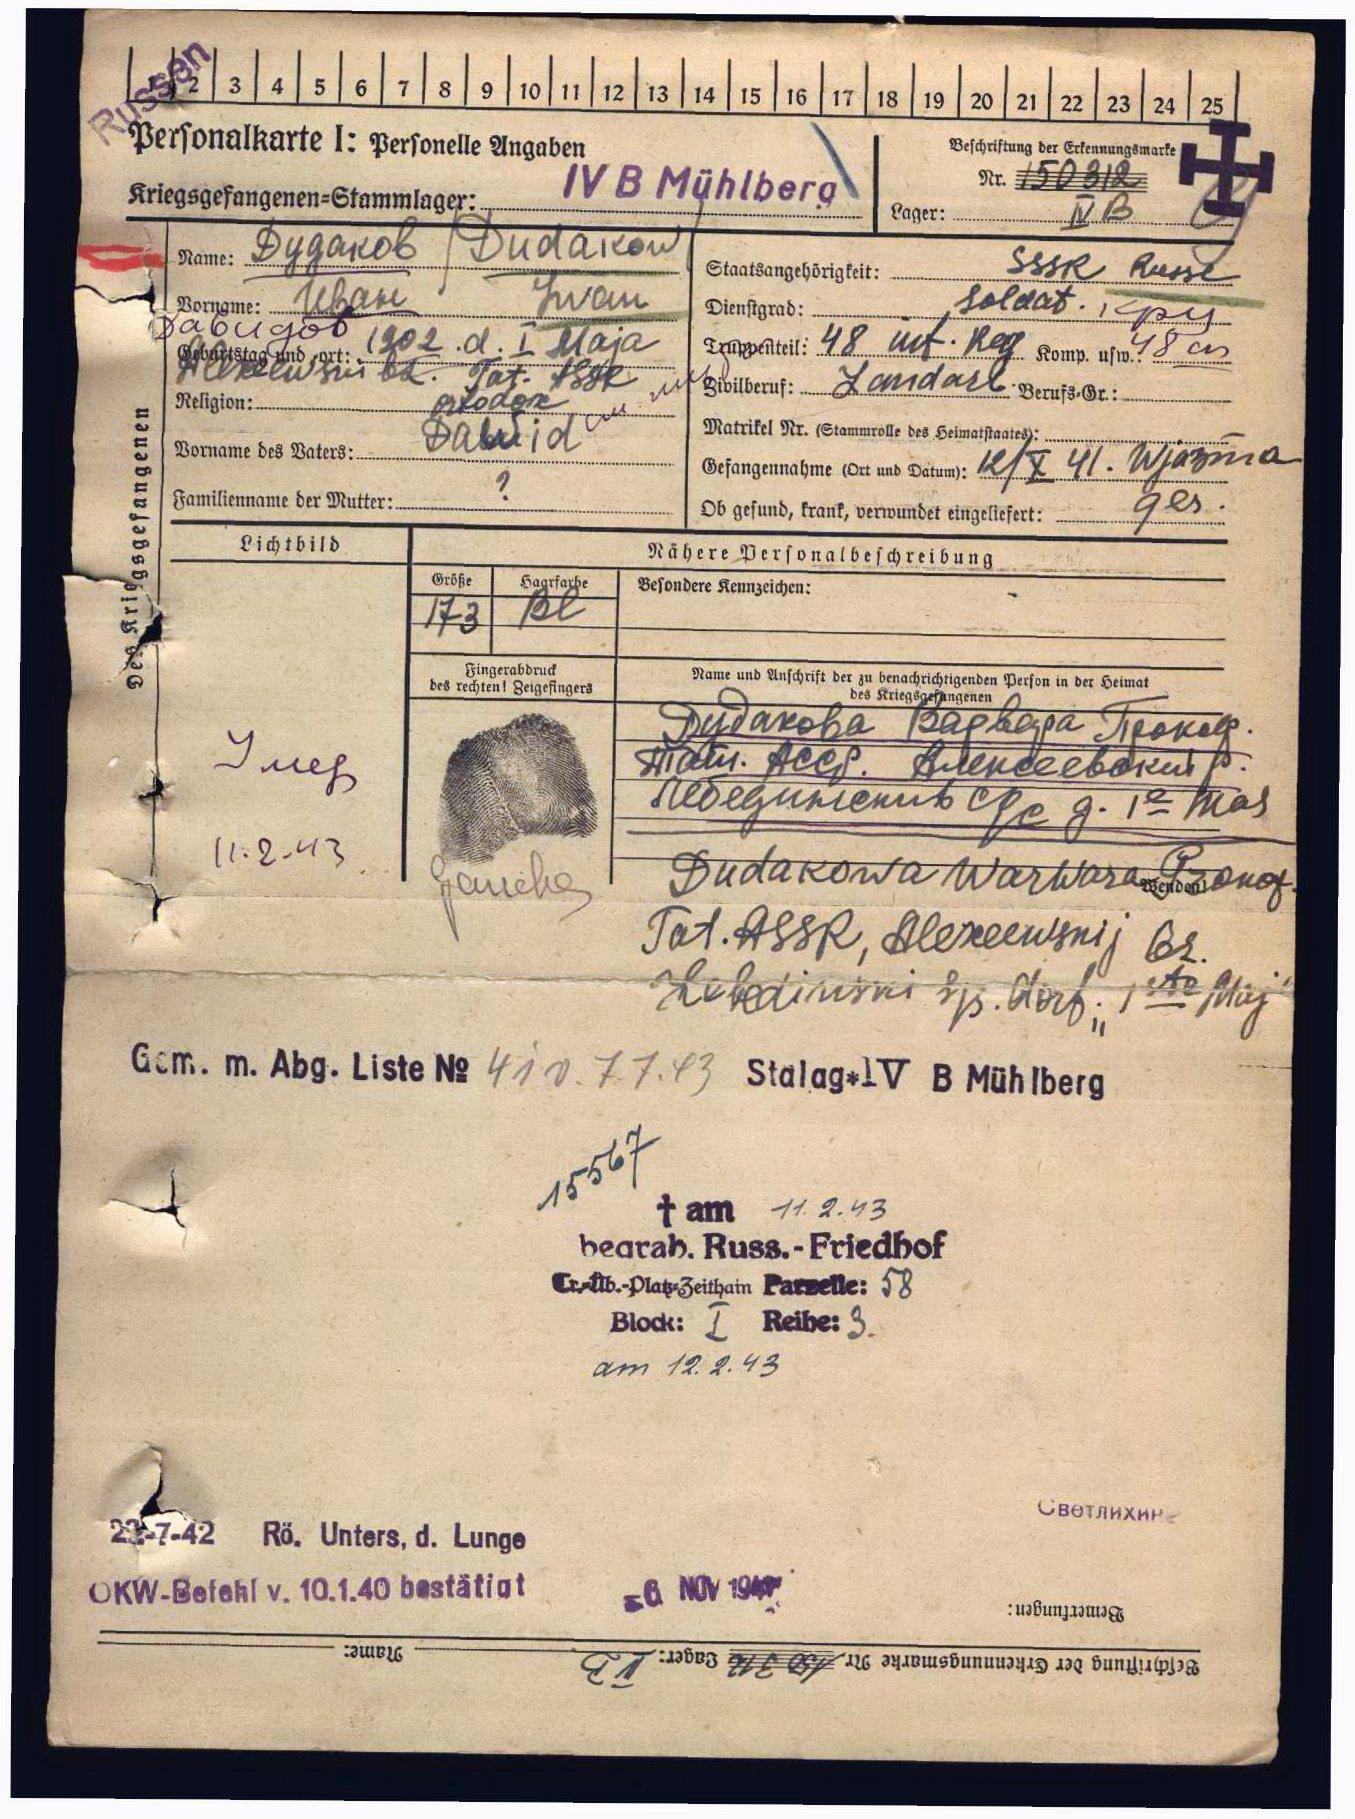 Russen
2 3 4 5 6 7 8 9 10 11 12 13 14 15 16 17 18 19 20 21 22 23 24 25
Personalkarte I: Personelle Angaben
Kriegsgefangenen-Stammlager: IV B Mühlberg
Beschriftung der Erkennungsmarke
Nr. 150312
Lager: IV B
Des Kriegsgefangenen
Name: Дудаков / Dudakow
Vorname: Иван Iwan
Давидов
Geburtstag und -ort: 1902. d. I Maja
Alexeewski bz. Tat. ASSR
Religion: ortodox
Vorname des Vaters: Dawid
Familienname der Mutter: ?
Staatsangehörigkeit: SSSR Russe
Dienstgrad: Soldat.
Truppenteil: 48 inf. Reg Komp. usw.: 48
Zivilberuf: Landarb. Berufs-Gr.:
Matrikel Nr. (Stammrolle des Heimatstaates):
Gefangennahme (Ort und Datum): 12/X 41. Wjazma
Ob gesund, krank, verwundet eingeliefert: ges.
Lichtbild
Nähere Personalbeschreibung
Größe Haarfarbe Besondere Kennzeichen: -
173 Bl
Fingerabdruck
des rechten! Zeigefingers
Name und Anschrift der zu benachrichtigenden Person in der Heimat
des Kriegsgefangenen
Умер
11.2.43
Дудакова Варвара Прокоф.
Тат. АССР. Алексеевский р.
Лебединский с/с д. 1е Мая
Dudakowa Warwara Prokof.
Wenden!
Tat. ASSR, Alexeewskij bz.
Lebedinski Dorf „1 Maj"
Gem. m. Abg. Liste № 410. 7.7.43 Stalag IV B Mühlberg
15567
† am 11.2.43
begrab. Russ.-Friedhof
Tr.-Üb.-Platz-Zeithain Parzelle: 58
Block: I Reihe: 3.
am 12.2.43
Светлихин
-7-42 Rö. Unters, d. Lunge
OKW-Befehl v. 10.1.40 bestätigt
-6 NOV 194
Bemerkungen:
Beschriftung der Erkennungsmarke Nr 150312 Lager: IV B Name: